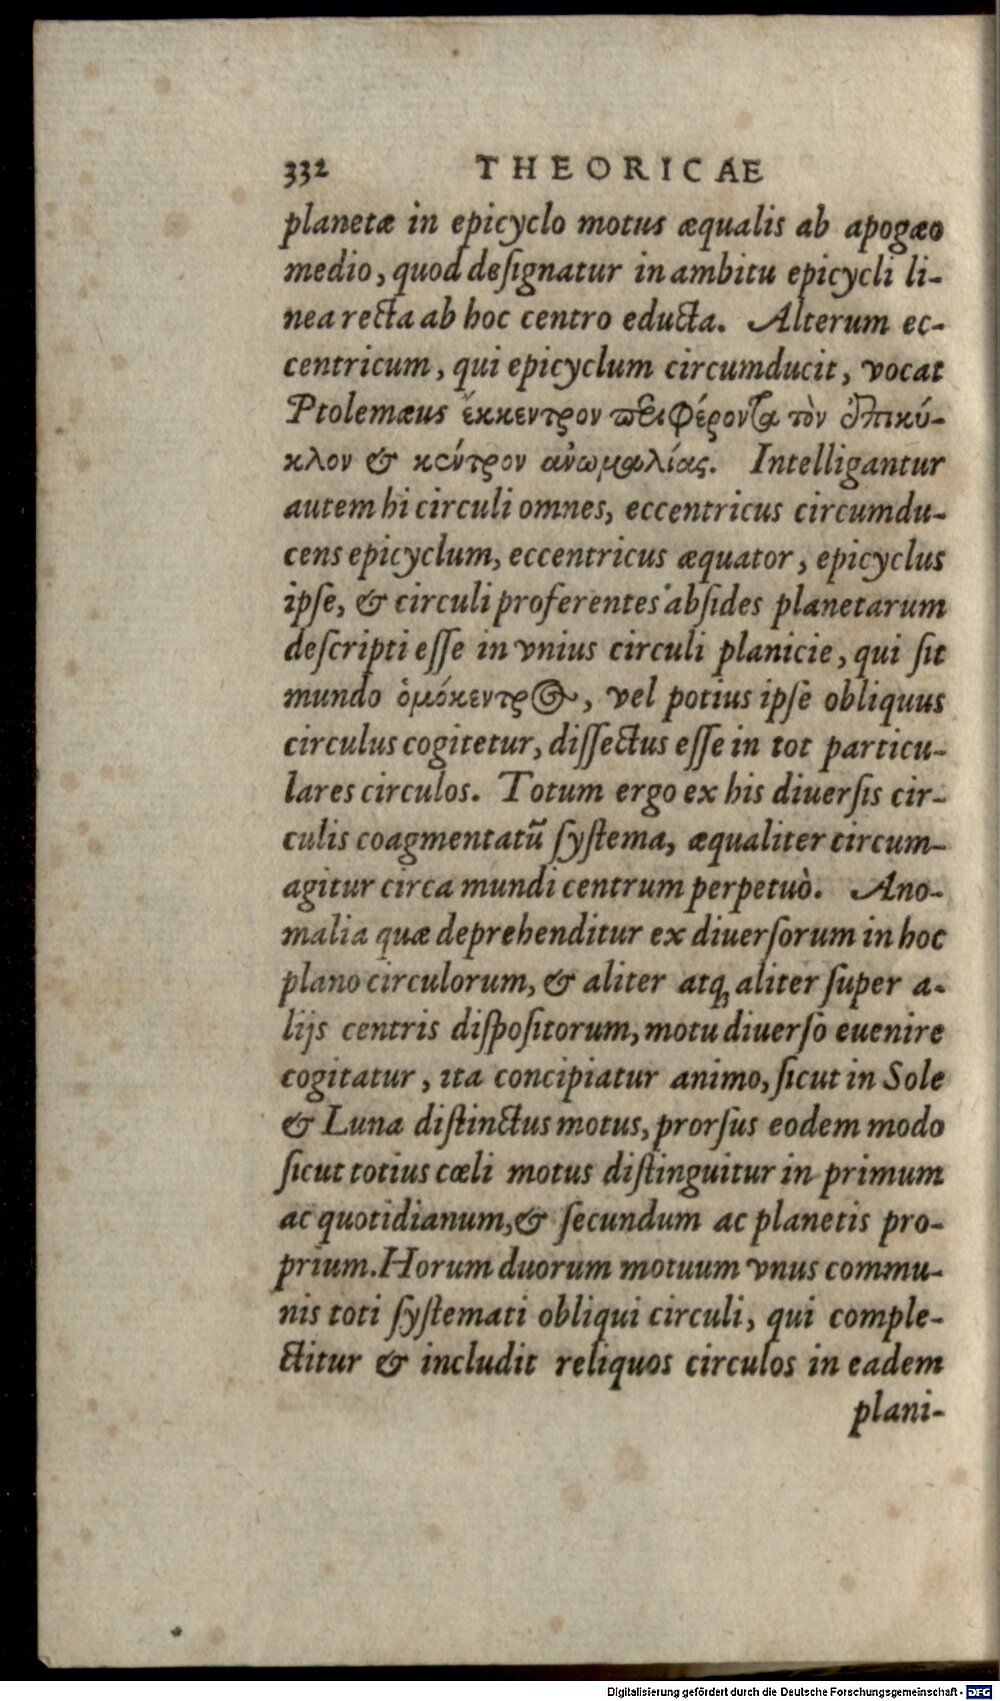 332 THEORICAE
planetæ in epicyclo motus æqualis ab apogæo
medio, quod deſignatur in ambitu epicycli li-
nea recta ab hoc centro educta. Alterum ec-
centricum, qui epicyclum circumducit, vocat
Ptolemæus ἔκκεντρον περιφέροντα τὸν ἐπικύ-
κλον & κέντρον ἀνωμαλίας. Intelligantur
autem hi circuli omnes, eccentricus circumdu-
cens epicyclum, eccentricus æquator, epicyclus
ipſe, & circuli proferentes abſides planetarum
deſcripti eſſe in vnius circuli planicie, qui ſit
mundo ὁμόκεντρος, vel potius ipſe obliquus
circulus cogitetur, diſſectus eſſe in tot particu-
lares circulos. Totum ergo ex his diuerſis cir-
culis coagmentatũ ſyſtema, æqualiter circum-
agitur circa mundi centrum perpetuò. Ano-
malia quæ deprehenditur ex diuerſorum in hoc
plano circulorum, & aliter atq; aliter ſuper a-
lijs centris diſpoſitorum, motu diuerſo euenire
cogitatur, ita concipiatur animo, ſicut in Sole
& Luna diſtinctus motus, prorſus eodem modo
ſicut totius cœli motus diſtinguitur in primum
ac quotidianum, & ſecundum ac planetis pro-
prium. Horum duorum motuum vnus commu-
nis toti ſyſtemati obliqui circuli, qui comple-
ctitur & includit reliquos circulos in eadem
plani-
Digitalisierung gefördert durch die Deutsche Forschungsgemeinschaft - DFG